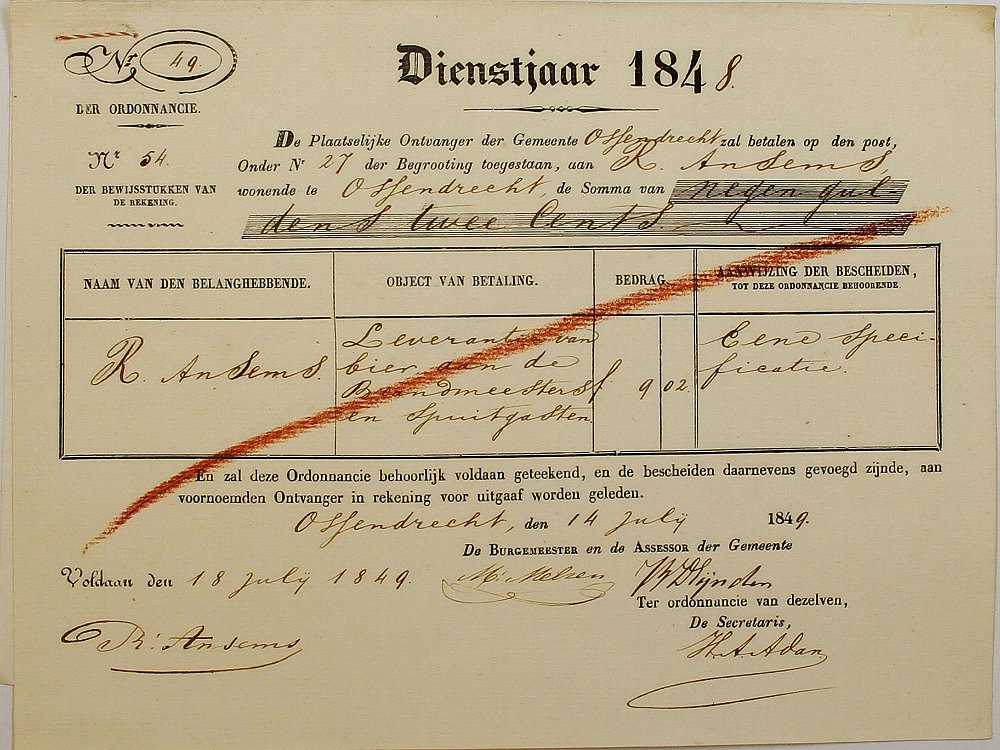 Nr 49.
Dienstjaar 1848.
DER ORDONNANCIE.
De Plaatselijke Ontvanger der Gemeente Ossendrecht zal betalen op den post,
Nr 54.
Onder Nr 27 der Begrooting toegestaan, aan R. Ansems,
DER BEWIJSSTUKKEN VAN
DE REKENING.
wonende te Ossendrecht, de Somma van negen gul
dens twee Cents.
NAAM VAN DEN BELANGHEBBENDE.
OBJECT VAN BETALING.
BEDRAG.
AANWIJZING DER BESCHEIDEN,
TOT DEZE ORDONNANCIE BEHOORENDE
R. Ansems.
Leverantie van
bier aan de
Brandmeesters
en Spuitgasten.
f 9 02.
Eene Speci-
ficatie.
En zal deze Ordonnancie behoorlijk voldaan geteekend, en de bescheiden daarnevens gevoegd zijnde, aan
voornoemden Ontvanger in rekening voor uitgaaf worden geleden.
Ossendrecht, den 14 July 1849.
De BURGEMEESTER en de ASSESSOR der Gemeente
Voldaan den 18 july 1849.
M. Melsen
Ter ordonnancie van dezelven,
De Secretaris,
R. Ansems
H.A. Adan